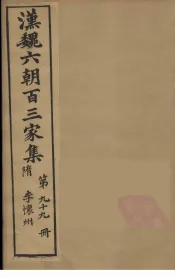 漢魏六朝百三家集
隋 李懷州
第九十九冊